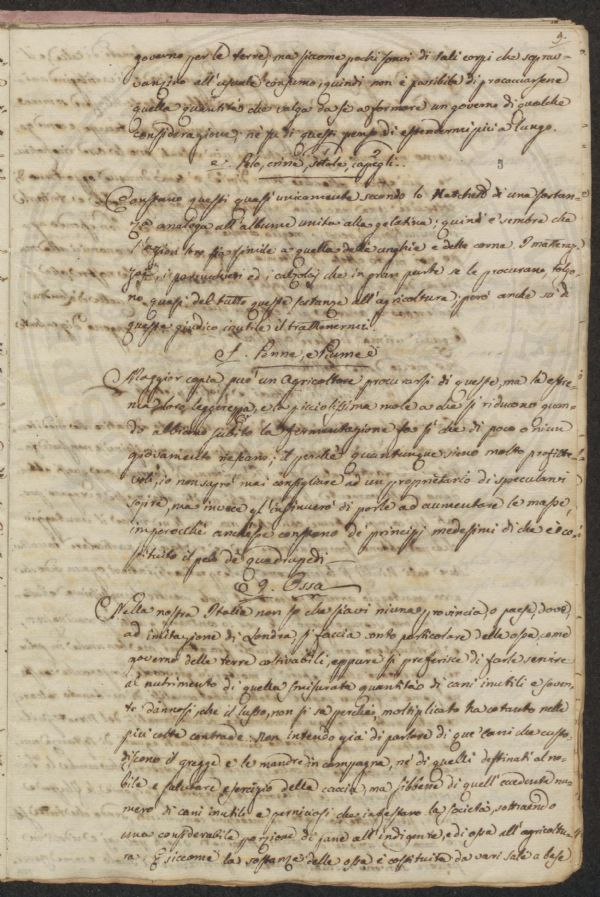 9.
governo per le terre; ma siccome pochi sonvi di tali corpi che soprav-
vanzino all'usuale consumo, quindi non è possibile di procacciarsene
quella quantità che valga da se a formare un governo di qualche
considerazione, nè su di questi penso di estendermi più a lungo.
e. Pelo, crine, setole, capegli.
Constano questi quasi unicamente secondo lo Hatchett di una sostan-
za analoga all'albume unito alla gelatina; quindi è sembra che
l'azion sia simile a quella delle unghie e delle corna. I materas-
saj, i perucchieri ed i calzolaj che in gran parte se le procurano, tolgo-
no quasi del tutto queste sostanze all'agricoltura; però anche su di
queste giudico inutile il trattenermi.
f. Penne, e Piume
Maggior copia può un Agricoltore procurarsi di queste, ma la estre-
ma loro leggerezza, e la picciolissima mole a che si riducono quan-
do abbiano subito la fermentazione fa sì che di poco o niun
giovamento riescano; il perchè quantunque sieno molto profitte-
voli, io non saprò mai consigliare ad un proprietario di specularvi
sopra, ma invece gl'insinuerò di porle ad aumentare le masse,
imperocchè anch'esse constano de' principj medesimi di che è co-
stituito il pelo de' quadrupedi.
g. Ossa
Nella nostra Italia non so che siavi niuna provincia, o paese, dove,
ad imitazione di Londra, si faccia conto particolare delle ossa, come
governo delle terre coltivabili, eppure si preferisce di farle servire
al nutrimento di quella smisurata quantità di cani inutili e soven-
te dannosi, che il lusso, non si sa perchè, moltiplicato ha cotanto nelle
più colte contrade. Non intendo già di parlare di que' cani che custo-
discono il gregge e le mandre in campagna, nè di quelli destinati al no-
bile e salutare esercizio della caccia, ma sibbene di quell'eccedente nu-
mero di cani inutile e perniciosi che infestano la società, sottraendo
una considerabile porzione di pane all'indigente, e di ossa all'agricoltu-
ra. E siccome la sostanza delle ossa è costituita da vari sali a base